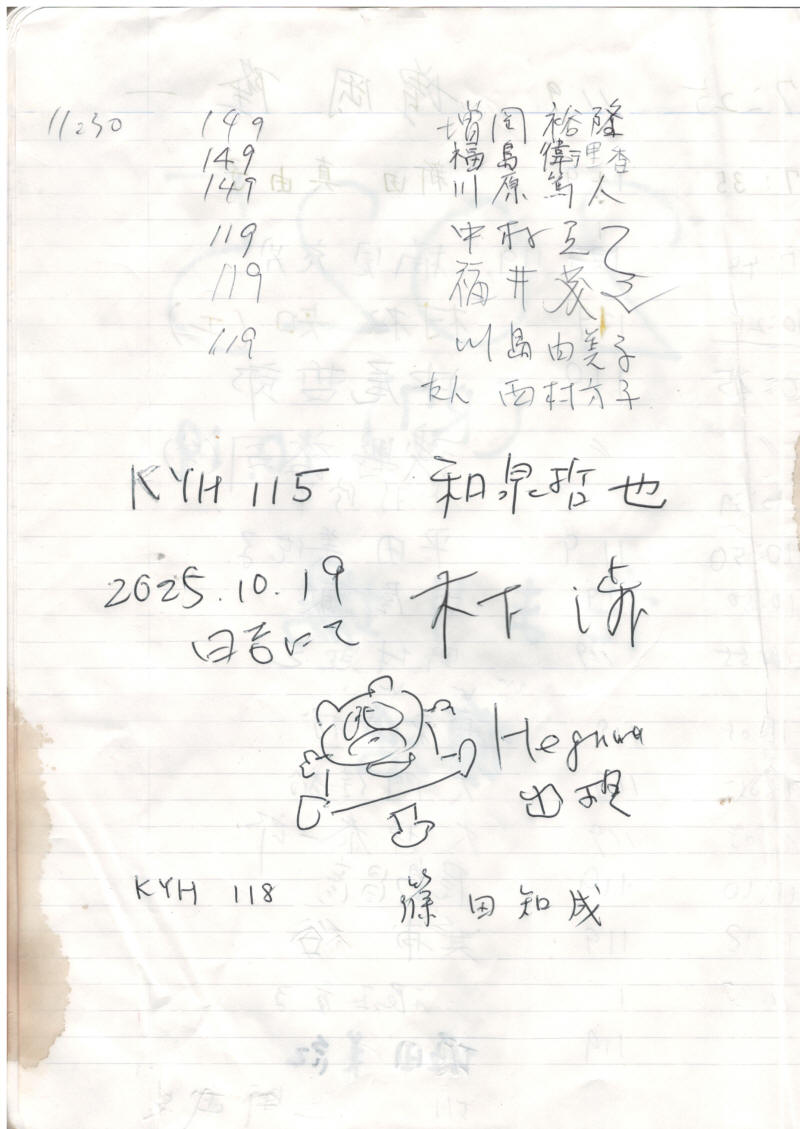 11:30 149 増岡 裕隆
149 福島 衛理杏
149 川原 篤人
119 中村
119 福井 茂
119 川島 由美子
友人 西村方子
KYH 115 和泉哲也
2025.10.19 木下 清
日吉にて
Hegnwa
出現
KYH 118 篠田知成